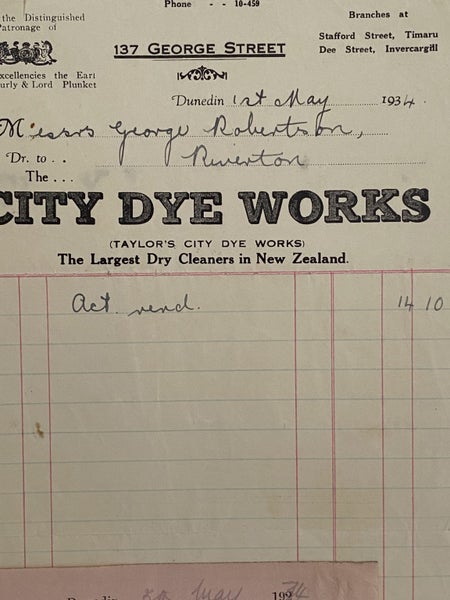 Phone - - 10-459
the Distinguished
Patronage of
Branches at
Stafford Street, Timaru
Dee Street, Invercargill
137 GEORGE STREET
Excellencies the Earl
urly & Lord Plunket
Dunedin 1st May 1934.
Messrs George Robertson,
Dr. to . . Riverton
The . . .
CITY DYE WORKS
(TAYLOR'S CITY DYE WORKS)
The Largest Dry Cleaners in New Zealand.
Act. rend. 14 10
May 1934